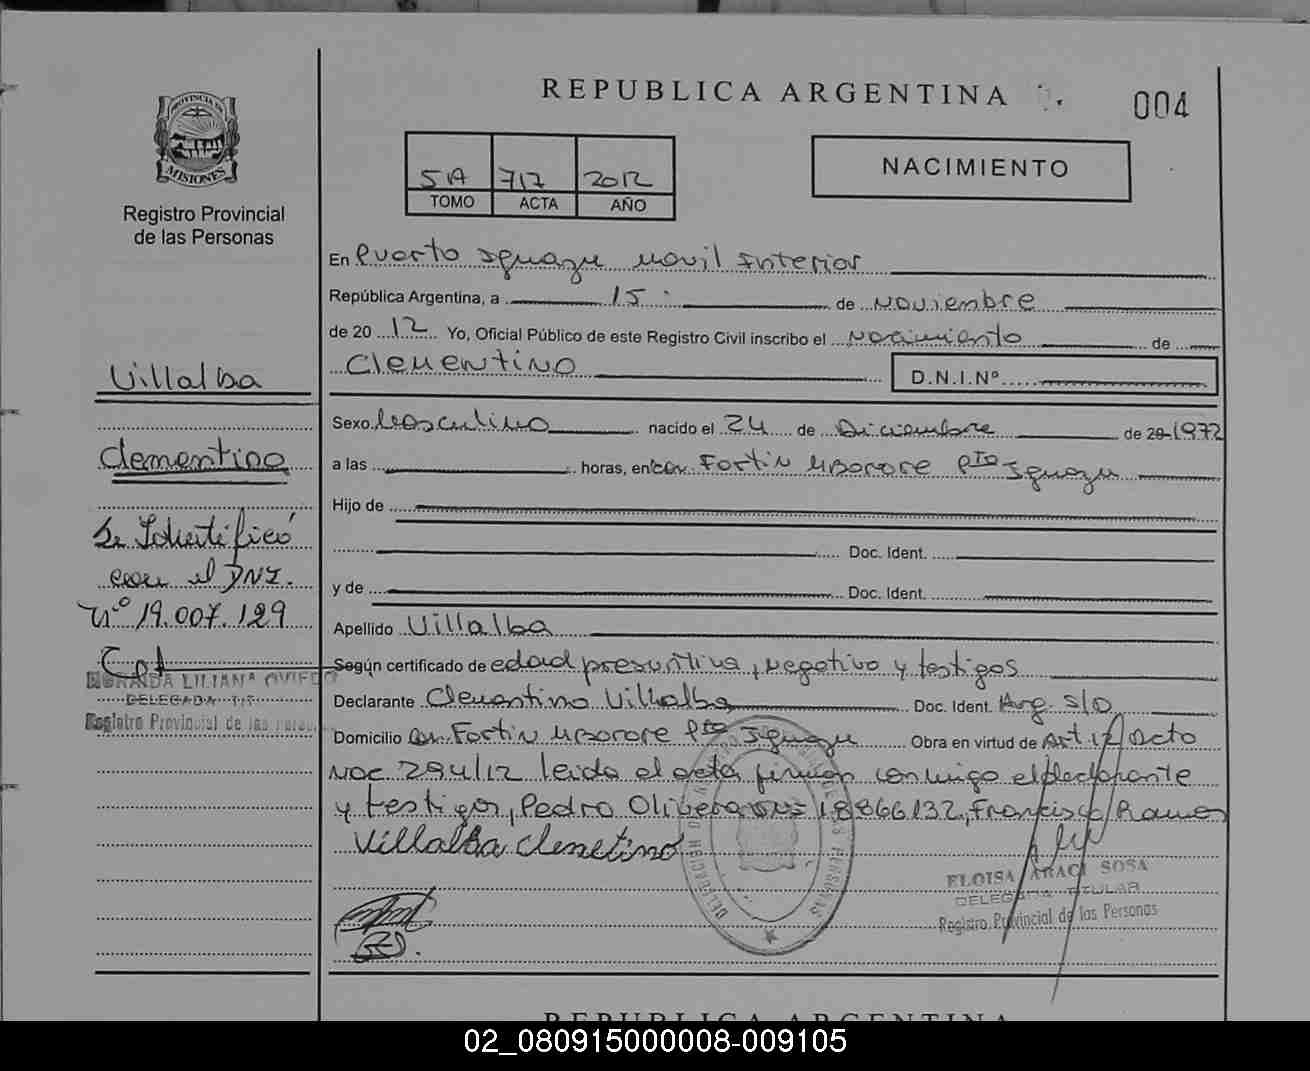 REPUBLICA ARGENTINA
004
PROVINCIA DE
MISIONES
Registro Provincial
de las Personas
51A 717 2012
TOMO ACTA AÑO
NACIMIENTO
En Puerto Iguazu Movil Interior
República Argentina, a 15 de Noviembre
de 20 12 Yo, Oficial Público de este Registro Civil inscribo el Nacimiento de
Clementino
D.N.I.Nº
Villalba
Clementino
Se Identificó
con el DNI.
Nº 19.007.129
LILIANA OVIEDO
DELEGADA TIT.
Registro Provincial de las
Sexo Masculino nacido el 24 de Diciembre de 20 1972
a las horas, en Com. Fortin Mborore Pto Iguazu
Hijo de
Doc. Ident.
y de Doc. Ident.
Apellido Villalba
Según certificado de edad presuntiva, negativo y testigos
Declarante Clementino Villalba Doc. Ident. Arg. S/D
Domicilio Com. Fortin Mborore Pto Iguazu Obra en virtud de Art 12 Dcto
Nac 294/12 leida el acta firman conmigo el declarante
y testigos, Pedro Olivera 18866132, Francisco Ramos
Villalba Clemetino
ELOISA ARACI SOSA
DELEGADA TITULAR
Registro Provincial de las Personas
REPUBLICA ARGENTINA
02_080915000008-009105